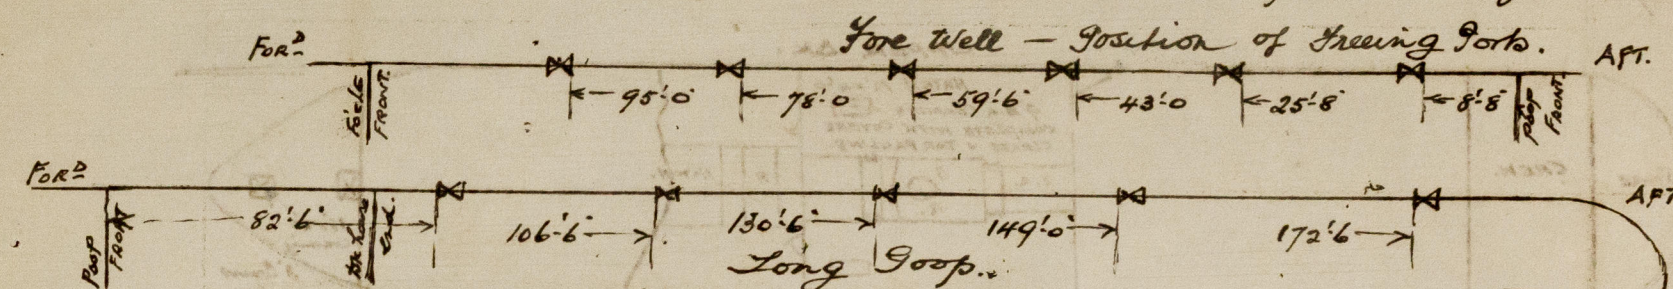 Fore Well — Position of Freeing Ports.
FORD AFT.
FO'CLE FRONT. 95'-0" 78'-0 59'-6" 43'-0 25'-8" 8'-8" POOP FRONT.
FORD AFT
POOP FRONT 82'-6" End. 106'-6" 130'-6" 149'-0" 172'-6
Long Poop.